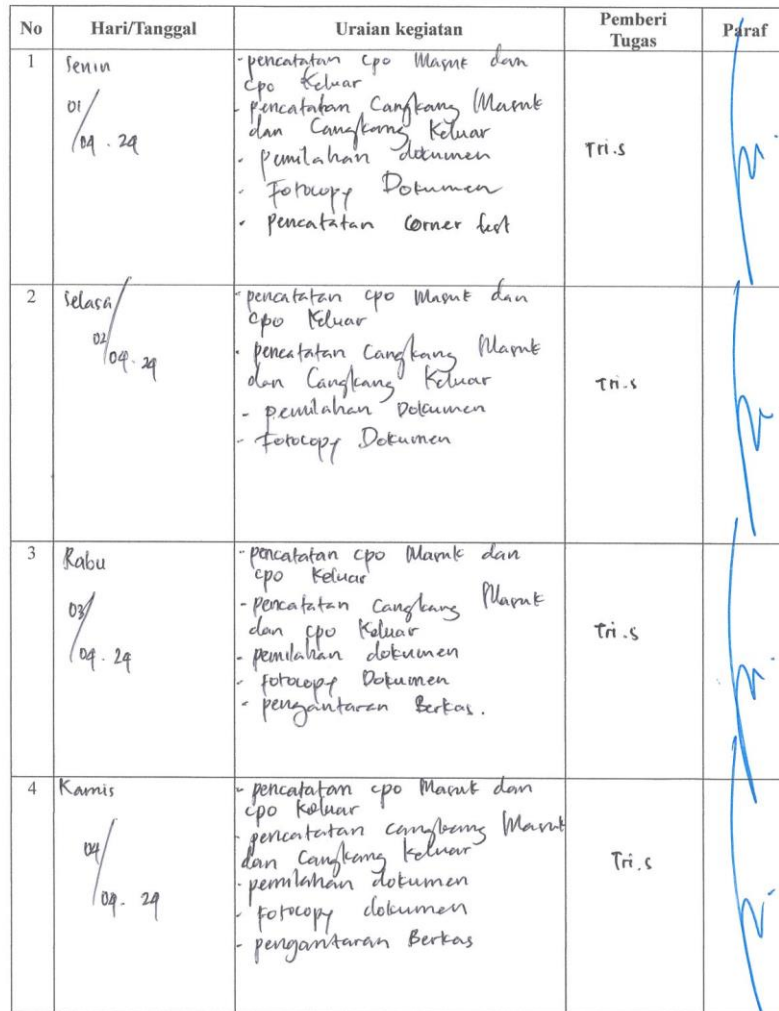 No Hari/Tanggal Uraian kegiatan Pemberi Tugas Paraf
1 Senin
01/04.24
- pencatatan cpo Masuk dan
cpo Keluar
- pencatatan Cangkang Masuk
dan Cangkang Keluar
- pemilahan dokumen
- Fotocopy Dokumen
- pencatatan Corner
Tri.s
2 Selasa
02/04.24
- pencatatan cpo Masuk dan
cpo Keluar
- pencatatan Cangkang Masuk
dan Cangkang Keluar
- pemilahan Dokumen
- Fotocopy Dokumen
Tri.s
3 Rabu
03/04.24
- pencatatan cpo Masuk dan
cpo Keluar
- pencatatan Cangkang Masuk
dan cpo Keluar
- pemilahan dokumen
- Fotocopy Dokumen
- pengantaran Berkas.
Tri.s
4 Kamis
04/04.24
- pencatatan cpo Masuk dan
cpo Keluar
- pencatatan cangkang Masuk
dan Cangkang Keluar
- pemilahan dokumen
- Fotocopy dokumen
- pengantaran Berkas
Tri.s